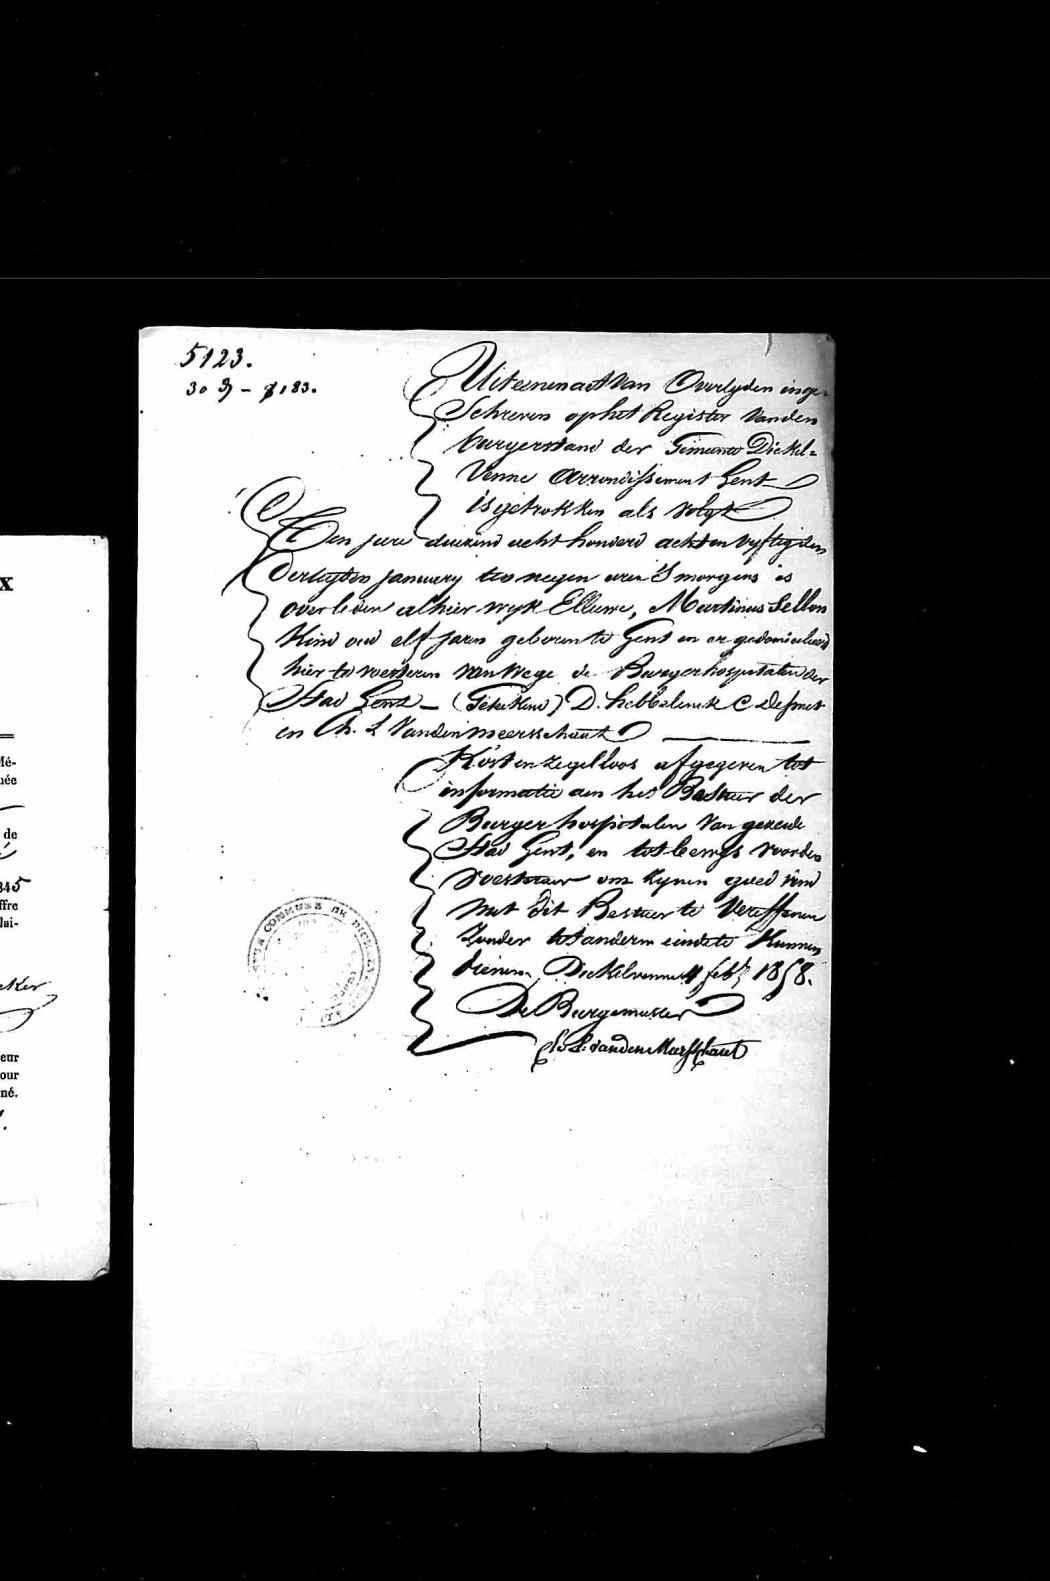 5123.
30 9 - 7183.
Uit eenen act van Overlyden inge-
schreven op het Register van den
burgerstand der Gemeente Dickel=
venne Arrondissement Gent
is getrokken als volgt
Den jare duizend acht honderd acht en vyftig den
dertigsten january ten negen uren 's morgens is
overleden alhier wyk Ellene, Martinus Sellon
Kind oud elf jaren geboren te Gent en er gedomicilieerd
hier te besteden van wege de Burgerhospitalen der
Stad Gent — (Getekend) D. hebbelinck C Desmet
en Ch. L Vandenmeersschaut
Kost en zegelloos afgegeven tot
informatie aen het Bestuer der
Burger hospitalen van gezeide
Stad Gent, en tot bewys voorden
Bestuer om zynen goed vind
met dit Bestuer te vereffenen
Zonder tot anderen einde te Kunnen
dienen, Dickelvenne 4 feb. 1858.
De Burgemeester
Ch. L. vandenMeersschaut
COMMUNE DE DICKELVENNE
X
Mé-
uée
de
845
ffre
lui-
eker
eur
our
né.